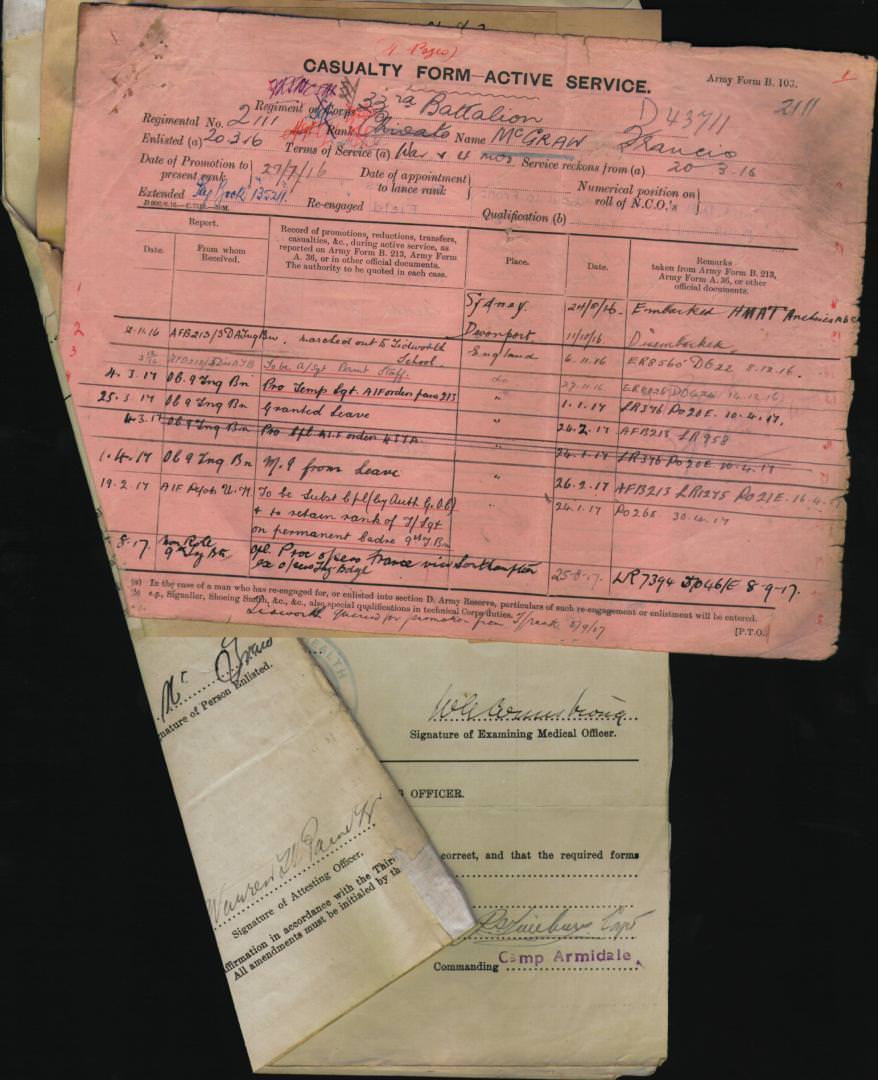 CASUALTY FORM—ACTIVE SERVICE.
Army Form B. 103.
2111
Regiment or Corps 33rd Battalion
D43711
Regimental No. 2111 Rank Private Name McGRAW Francis
Enlisted (a) 20.3.16 Terms of Service (a) War & 4 mos Service reckons from (a) 20-3.16
Date of Promotion to present rank 27/7/16 Date of appointment to lance rank Numerical position on roll of N.C.O.'s
Extended Re-engaged Qualification (b)
Report.
Record of promotions, reductions, transfers, casualties, &c., during active service, as reported on Army Form B. 213, Army Form A. 36, or in other official documents. The authority to be quoted in each case.
Place.
Date.
Remarks
taken from Army Form B. 213, Army Form A. 36, or other official documents.
Date.
From whom Received.
Sydney. 24/8/16 Embarked HMAT Anchises A68
Devonport. 11/10/16 Disembarked
12.11.16 AFB213/3DATng Bn. Marched out to Tidworth School. England 6.11.16 ER8560 DO22 8.12.16.
To be A/Sgt Permt Staff. do 27.11.16
4.3.17 Ob 9 Tng Bn Pro Temp Sgt. AIF orders para 213 " 1.1.17 LR376 Po20E. 10.4.17.
25.3.17 Ob 9 Tng Bn Granted Leave " 24.2.17 AFB213 LR958
4.3.17 Ob 9 Tng Bn Pro Cpl AIF orders " 24.1.17 LR376 Po20E 10.4.17
1.4.17 Ob 9 Tng Bn M.I from Leave " 26.2.17 AFB213 LR1275 Po21E. 16.4.17
19.2.17 AIF Depots U.K To be Subst Cpl (by Auth G.O.C) " 24.1.17 Po26E 30.4.17
& to retain rank of T/Sgt
on permanent cadre 9th T Bn
8.17. 9th Tng Btn Proc o/seas France via Southampton 25.8.17. LR7394 Do46/E 8-9-17.
ex o/seas Tng Bdge
(a) In the case of a man who has re-engaged for, or enlisted into section D. Army Reserve, particulars of such re-engagement or enlistment will be entered.
(b) e.g., Signaller, Shoeing Smith, &c., &c., also special qualifications in technical Corps duties.
[P.T.O.
Mr
Signature of Person Enlisted.
HEALTH
Signature of Examining Medical Officer.
OFFICER.
correct, and that the required forms
Signature of Attesting Officer.
ffirmation in accordance with the Thir
All amendments must be initialed by th
Capt
Commanding Camp Armidale.